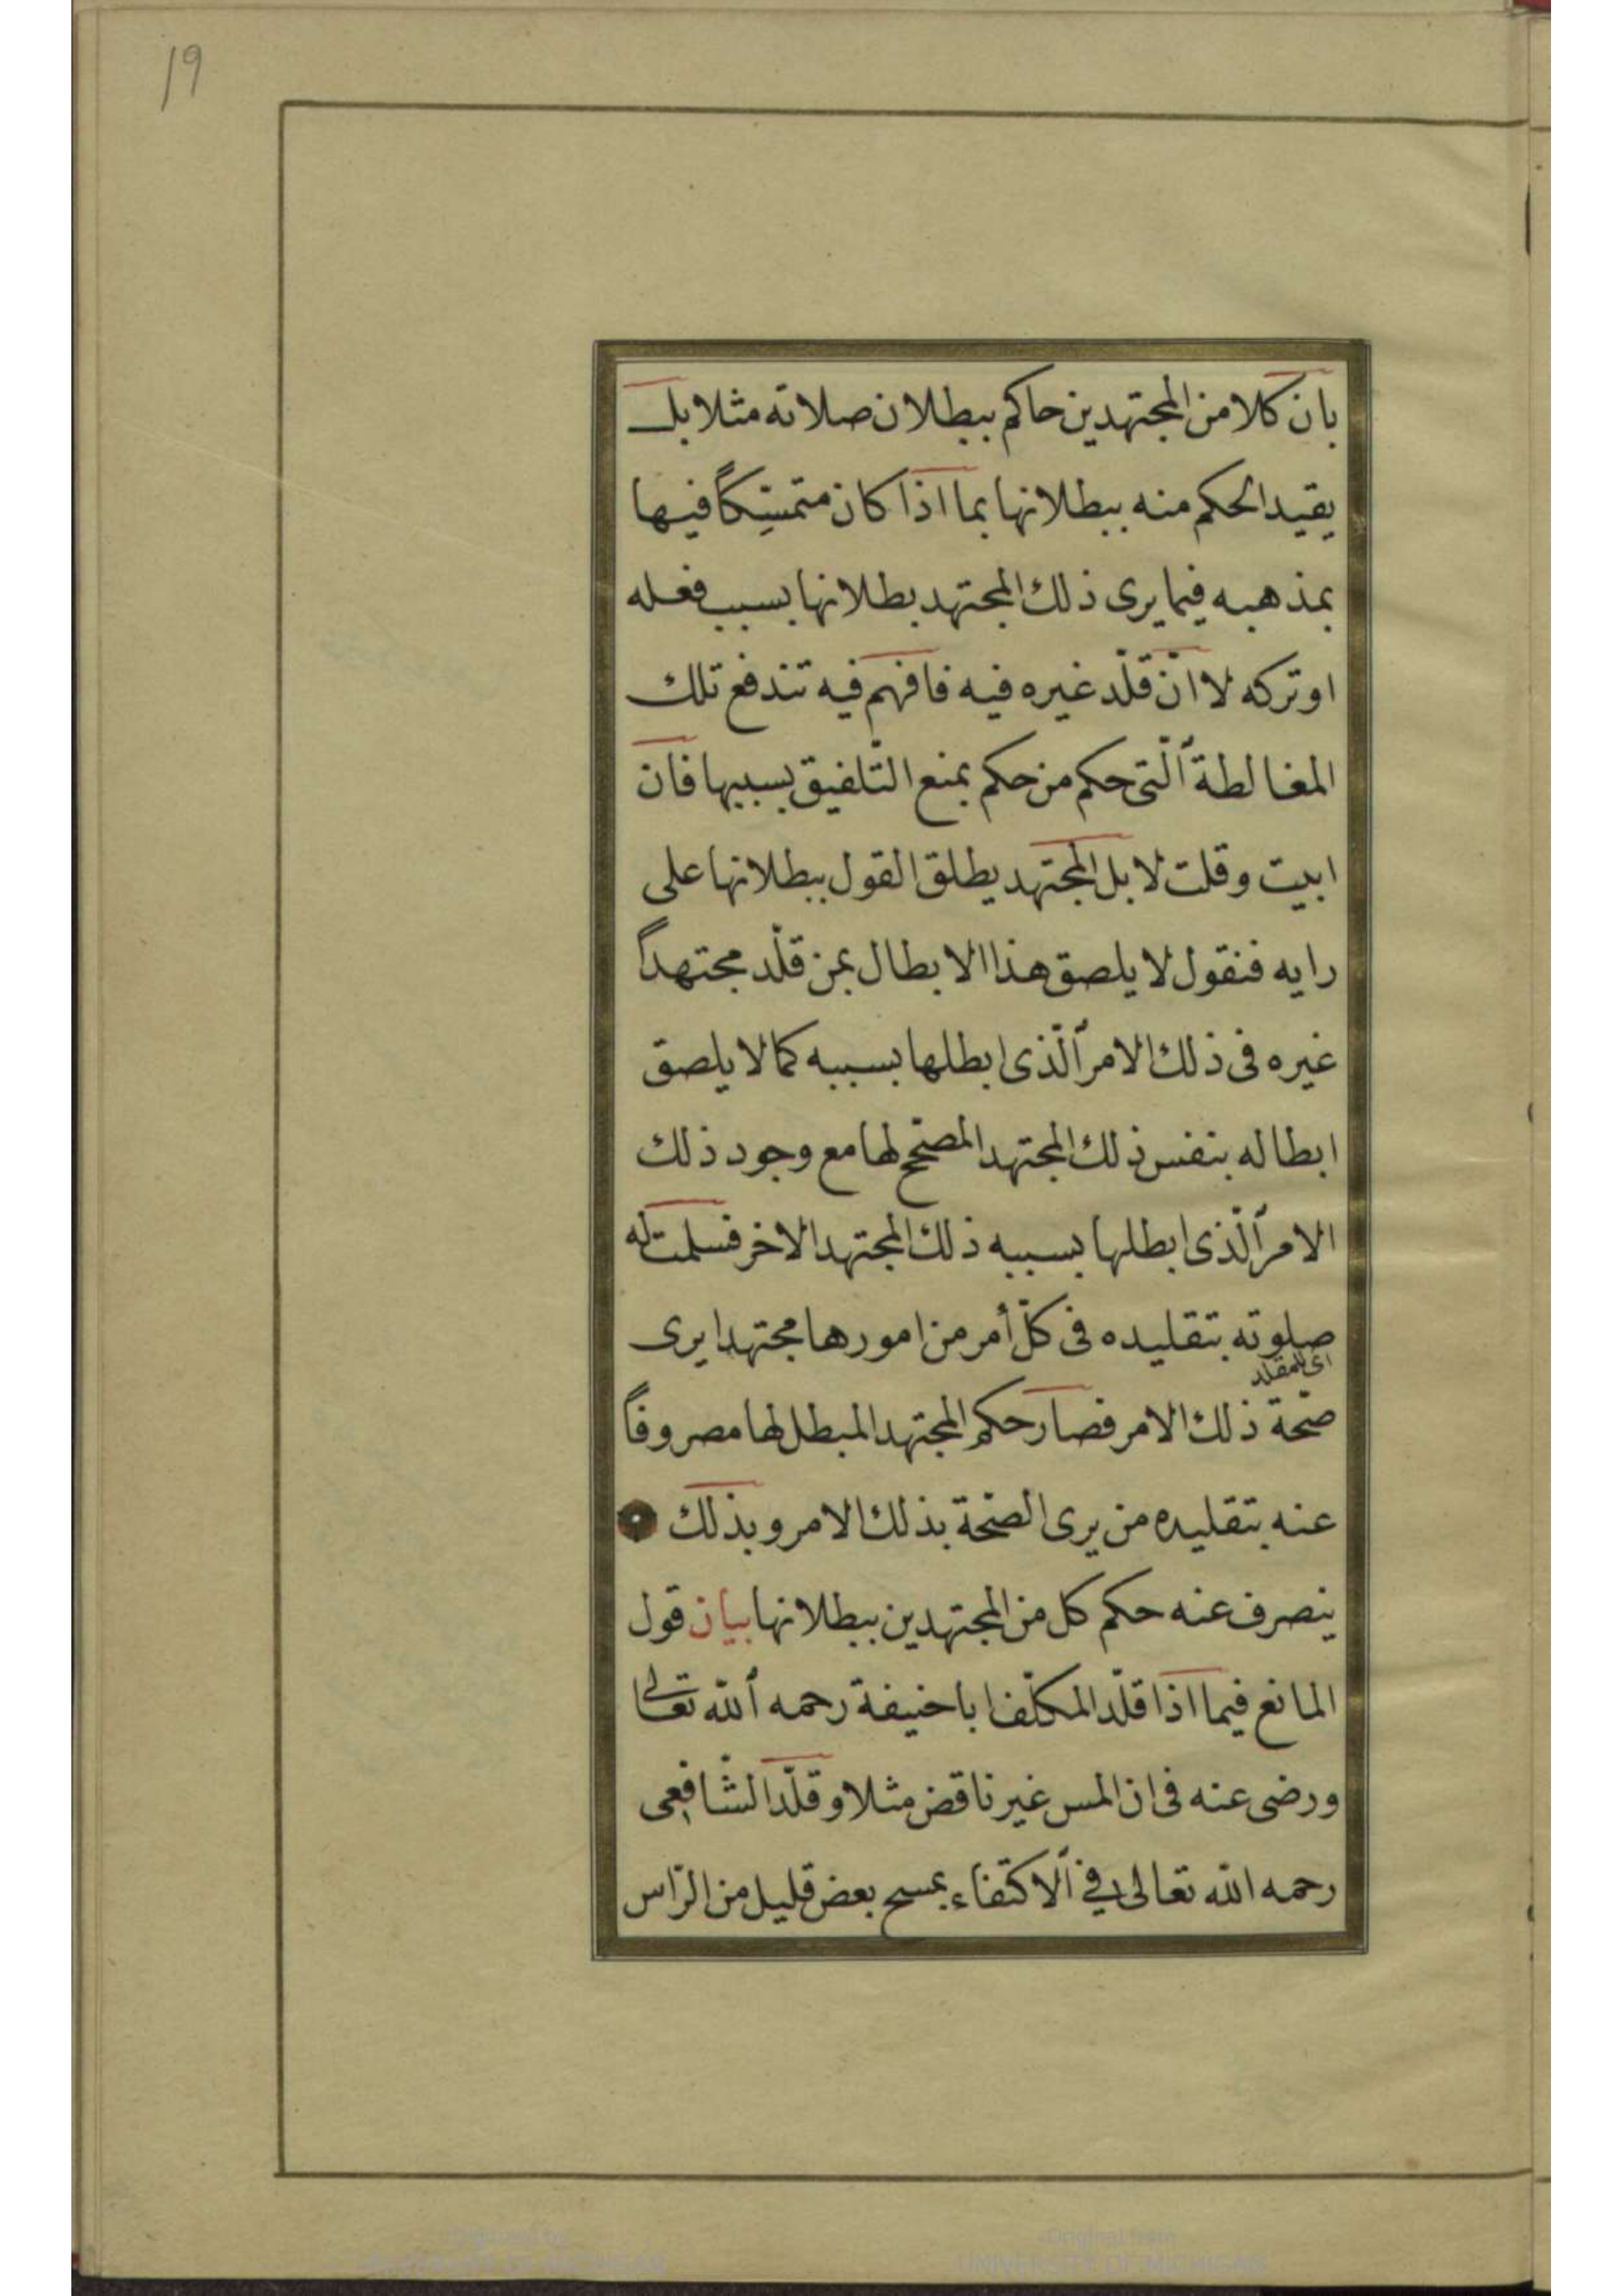 19
بان كلا من المجتهدين حاكم ببطلان صلاته مثلا بل
يقيد الحكم منه ببطلانها بما اذا كان متمسِّكاً فيها
بمذهبه فيما يرى ذلك المجتهد بطلانها بسبب فعله
او تركه لا ان قلّد غيره فيه فافهم فيه تندفع تلك
المغالطة ٱلّتى حكم من حكم بمنع التّلفيق بسببها فان
ابيت وقلت لا بل المجتهد يطلق القول ببطلانها على
رايه فنقول لا يلصق هذا الابطال بمن قلّد مجتهداً
غيره فى ذلك الامر ٱلّذى ابطلها بسببه كما لا يلصق
ابطاله بنفس ذلك المجتهد المصحّح لها مع وجود ذلك
الامر ٱلّذى ابطلها بسببه ذلك المجتهد الاخر فسلمت له
صلوته بتقليده فى كلّ أمر من امورها مجتهدا يرى
اى للمقلد
صحّة ذلك الامر فصار حكم المجتهد المبطل لها مصروفاً
عنه بتقليده من يرى الصّحّة بذلك الامر وبذلك
ينصرف عنه حكم كل من المجتهدين ببطلانها بيان قول
المانع فيما اذا قلّد المكلّف ابا حنيفة رحمه ٱللّه تعالى
ورضى عنه فى ان المس غير ناقض مثلا وقلّد الشّافعى
رحمه اللّه تعالى فى ٱلاكتفاء بمسح بعض قليل من الرّاس